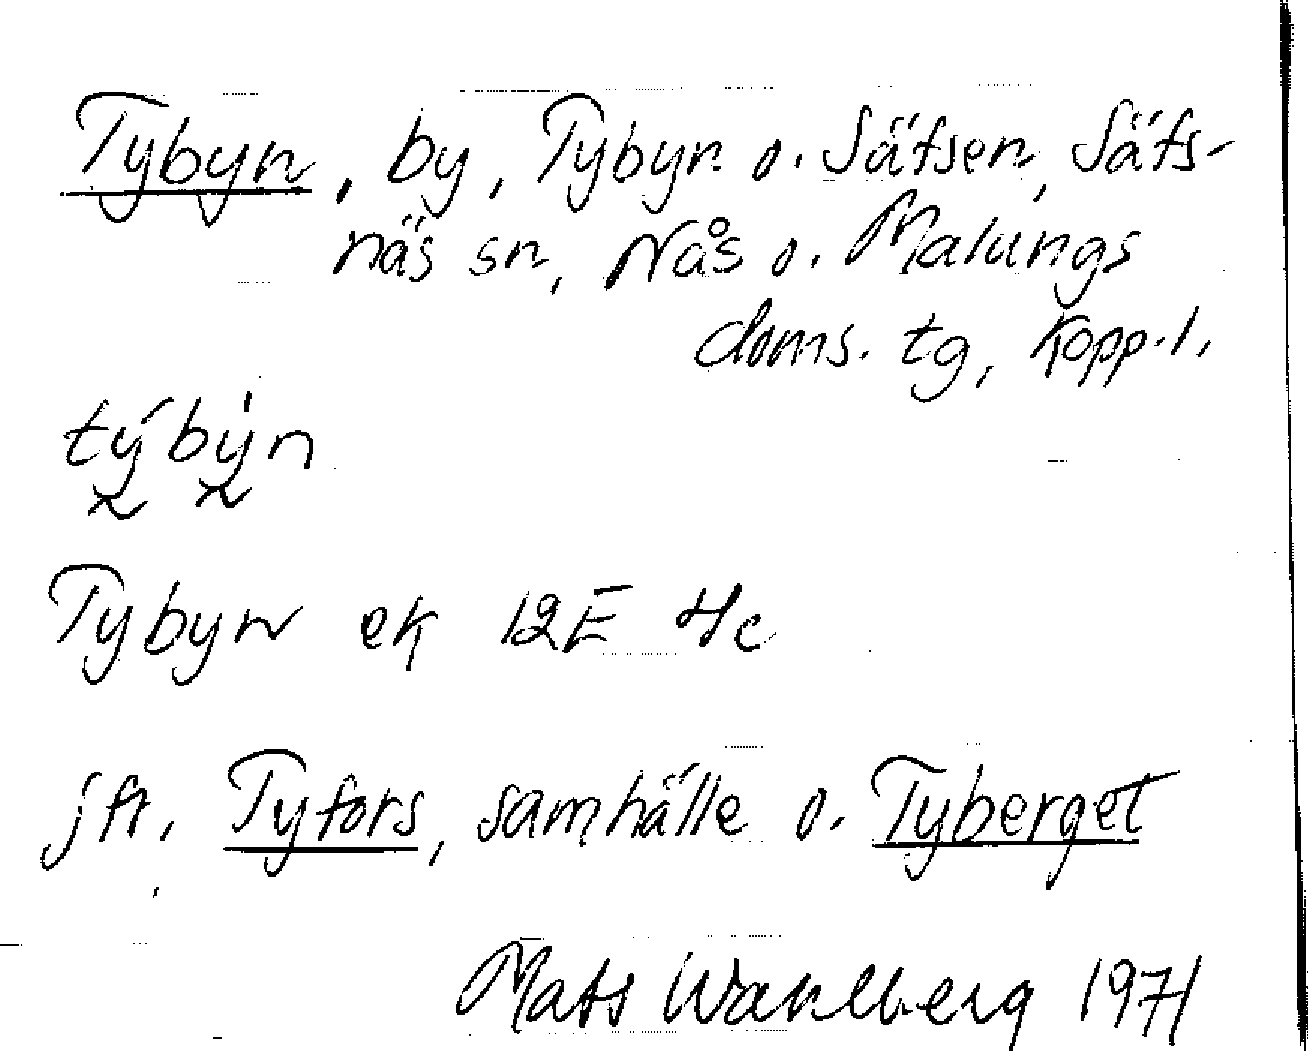 Tybyn, by, Tybyn o. Säfsen, Säfs-
näs sn, Nås o. Malungs
doms. tg, Kopp. l.
týbẏn
Tybyn ek 12E 4c
jfr. Tyfors, samhälle o. Tyberget
Mats Wahlberg 1971